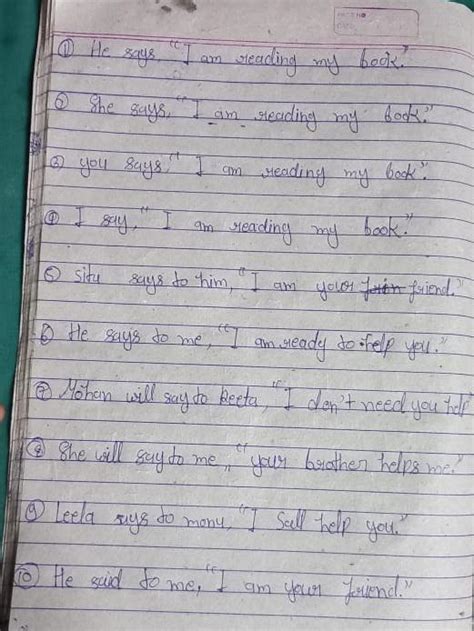 ① He says, "I am reading my book."
② She says, "I am reading my book."
③ you says, "I am reading my book".
④ I say, "I am reading my book."
⑤ Situ says to him, "I am your friend."
⑥ He says to me, "I am ready to help you."
⑦ Mohan will say to Reeta, "I don't need you help
⑧ She will say to me, "your brother helps me."
⑨ Leela says to monu, "I Sall help you."
⑩ He said to me, "I am your friend."